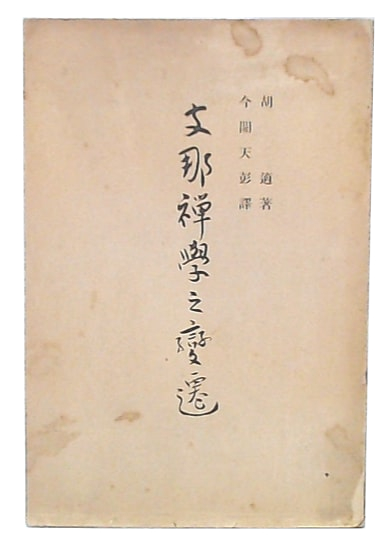 胡適著
今關天彭譯
支那禅學之變遷